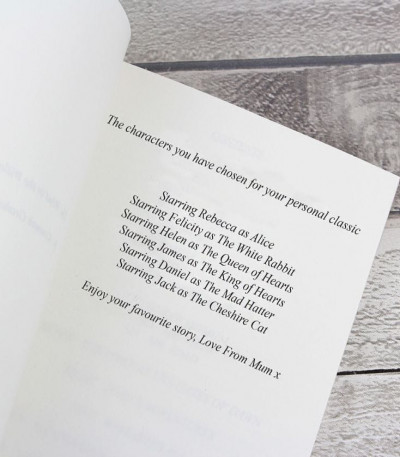 The characters you have chosen for your personal classic
Starring Rebecca as Alice
Starring Felicity as The White Rabbit
Starring Helen as The Queen of Hearts
Starring James as The King of Hearts
Starring Daniel as The Mad Hatter
Starring Jack as The Cheshire Cat
Enjoy your favourite story, Love From Mum x